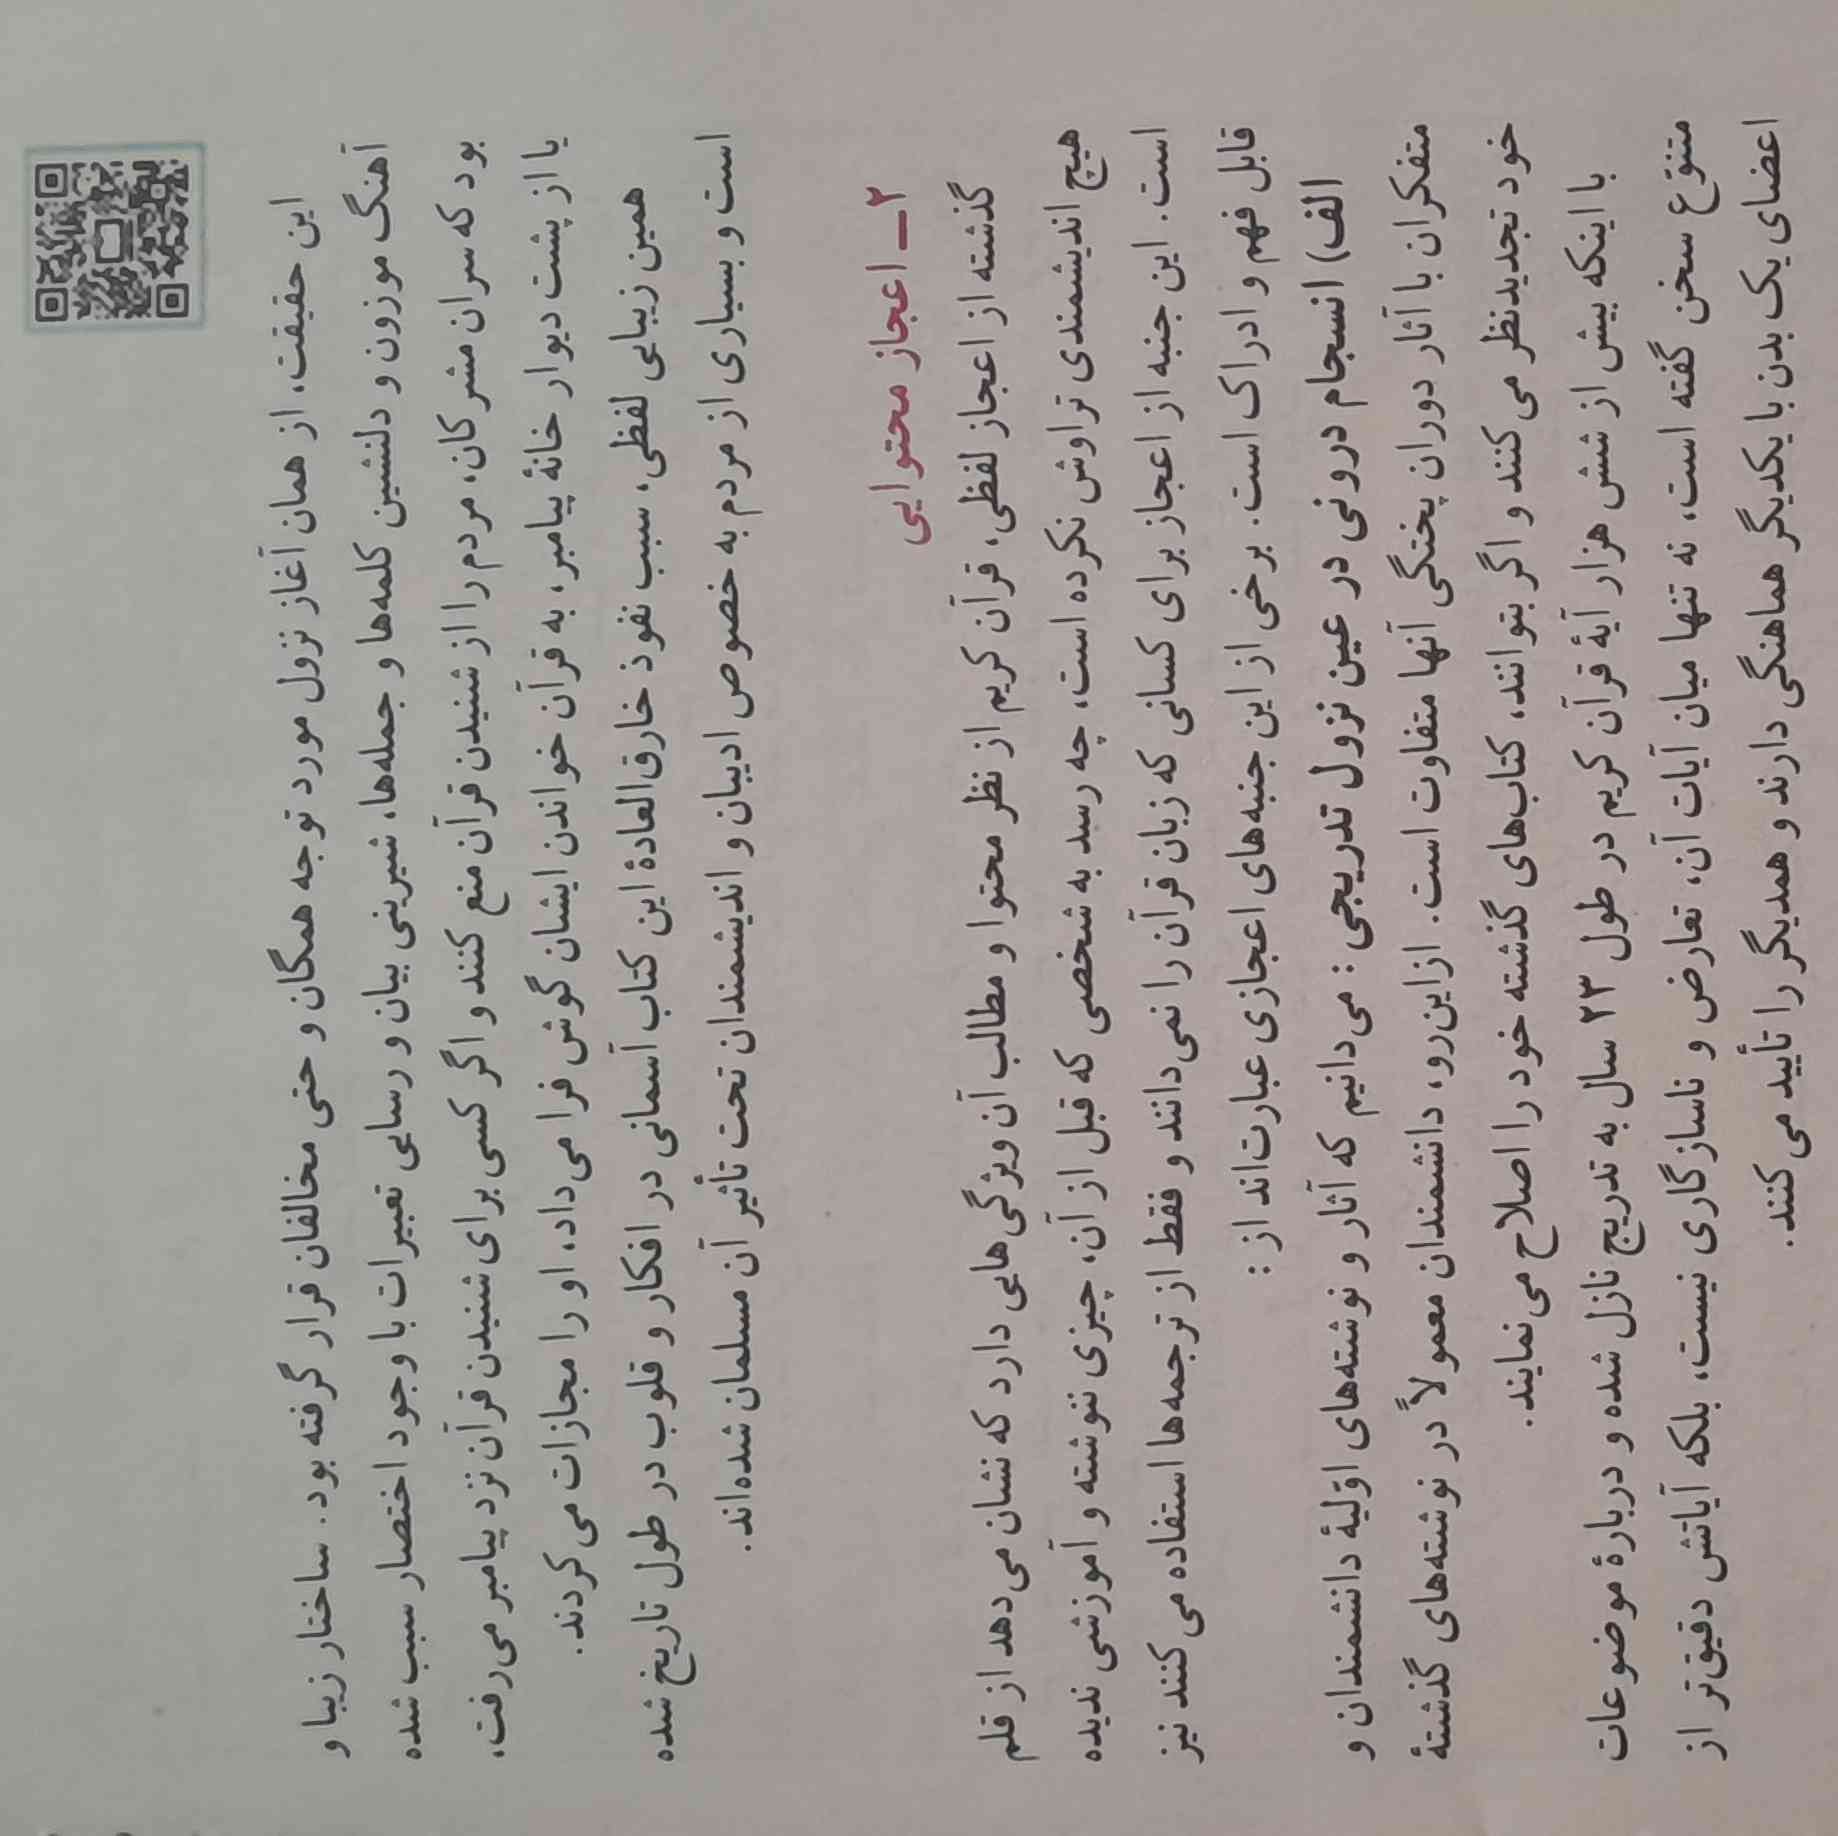 این حقیقت، از همان آغاز نزول مورد توجه همگان و حتی مخالفان قرار گرفته بود. ساختار زیبا و
آهنگ موزون و دلنشین کلمه‌ها و جمله‌ها، شیرینی بیان و رسایی تعبیرات با وجود اختصار سبب شده
بود که سران مشرکان، مردم را از شنیدن قرآن منع کنند و اگر کسی برای شنیدن قرآن نزد پیامبر می‌رفت،
یا از پشت دیوار خانهٔ پیامبر، به قرآن خواندن ایشان گوش فرا می‌داد، او را مجازات می‌کردند.
همین زیبایی لفظی، سبب نفوذ خارق‌العادهٔ این کتاب آسمانی در افکار و قلوب در طول تاریخ شده
است و بسیاری از مردم به خصوص ادیبان و اندیشمندان تحت تأثیر آن مسلمان شده‌اند.
۲ــ اعجاز محتوایی
گذشته از اعجاز لفظی، قرآن کریم از نظر محتوا و مطالب آن ویژگی‌هایی دارد که نشان می‌دهد از قلم
هیچ اندیشمندی تراوش نکرده است، چه رسد به شخصی که قبل از آن، چیزی ننوشته و آموزشی ندیده
است. این جنبه از اعجاز برای کسانی که زبان قرآن را نمی‌دانند و فقط از ترجمه‌ها استفاده می‌کنند نیز
قابل فهم و ادراک است. برخی از این جنبه‌های اعجازی عبارت‌اند از :
الف) انسجام درونی در عین نزول تدریجی : می‌دانیم که آثار و نوشته‌های اوّلیهٔ دانشمندان و
متفکران با آثار دوران پختگی آنها متفاوت است. ازاین‌رو، دانشمندان معمولاً در نوشته‌های گذشتهٔ
خود تجدیدنظر می‌کنند و اگر بتوانند، کتاب‌های گذشته خود را اصلاح می‌نمایند.
با اینکه بیش از شش هزار آیهٔ قرآن کریم در طول ۲۳ سال به تدریج نازل شده و دربارهٔ موضوعات
متنوّع سخن گفته است، نه تنها میان آیات آن، تعارض و ناسازگاری نیست، بلکه آیاتش دقیق‌تر از
اعضای یک بدن با یکدیگر هماهنگی دارند و همدیگر را تأیید می‌کنند.